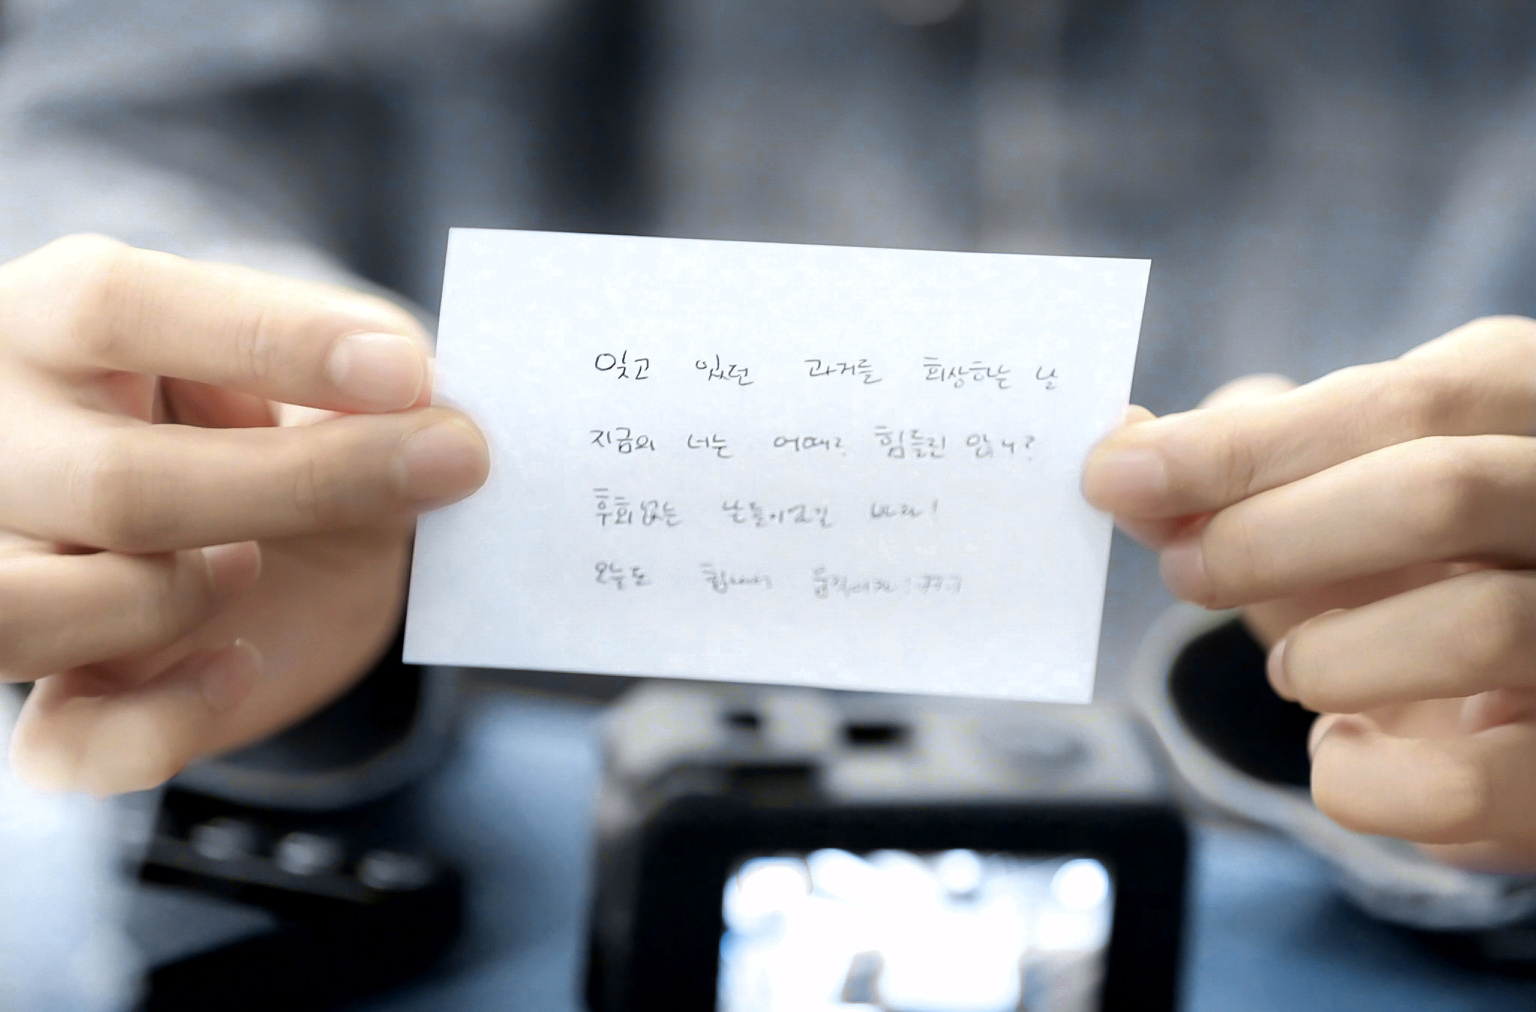 잊고 있던 과거를 회상하는 날
지금의 너는 어때? 힘들진 않니?
후회없는 날들이였길 바래!
오늘도 힘내서 움직이자